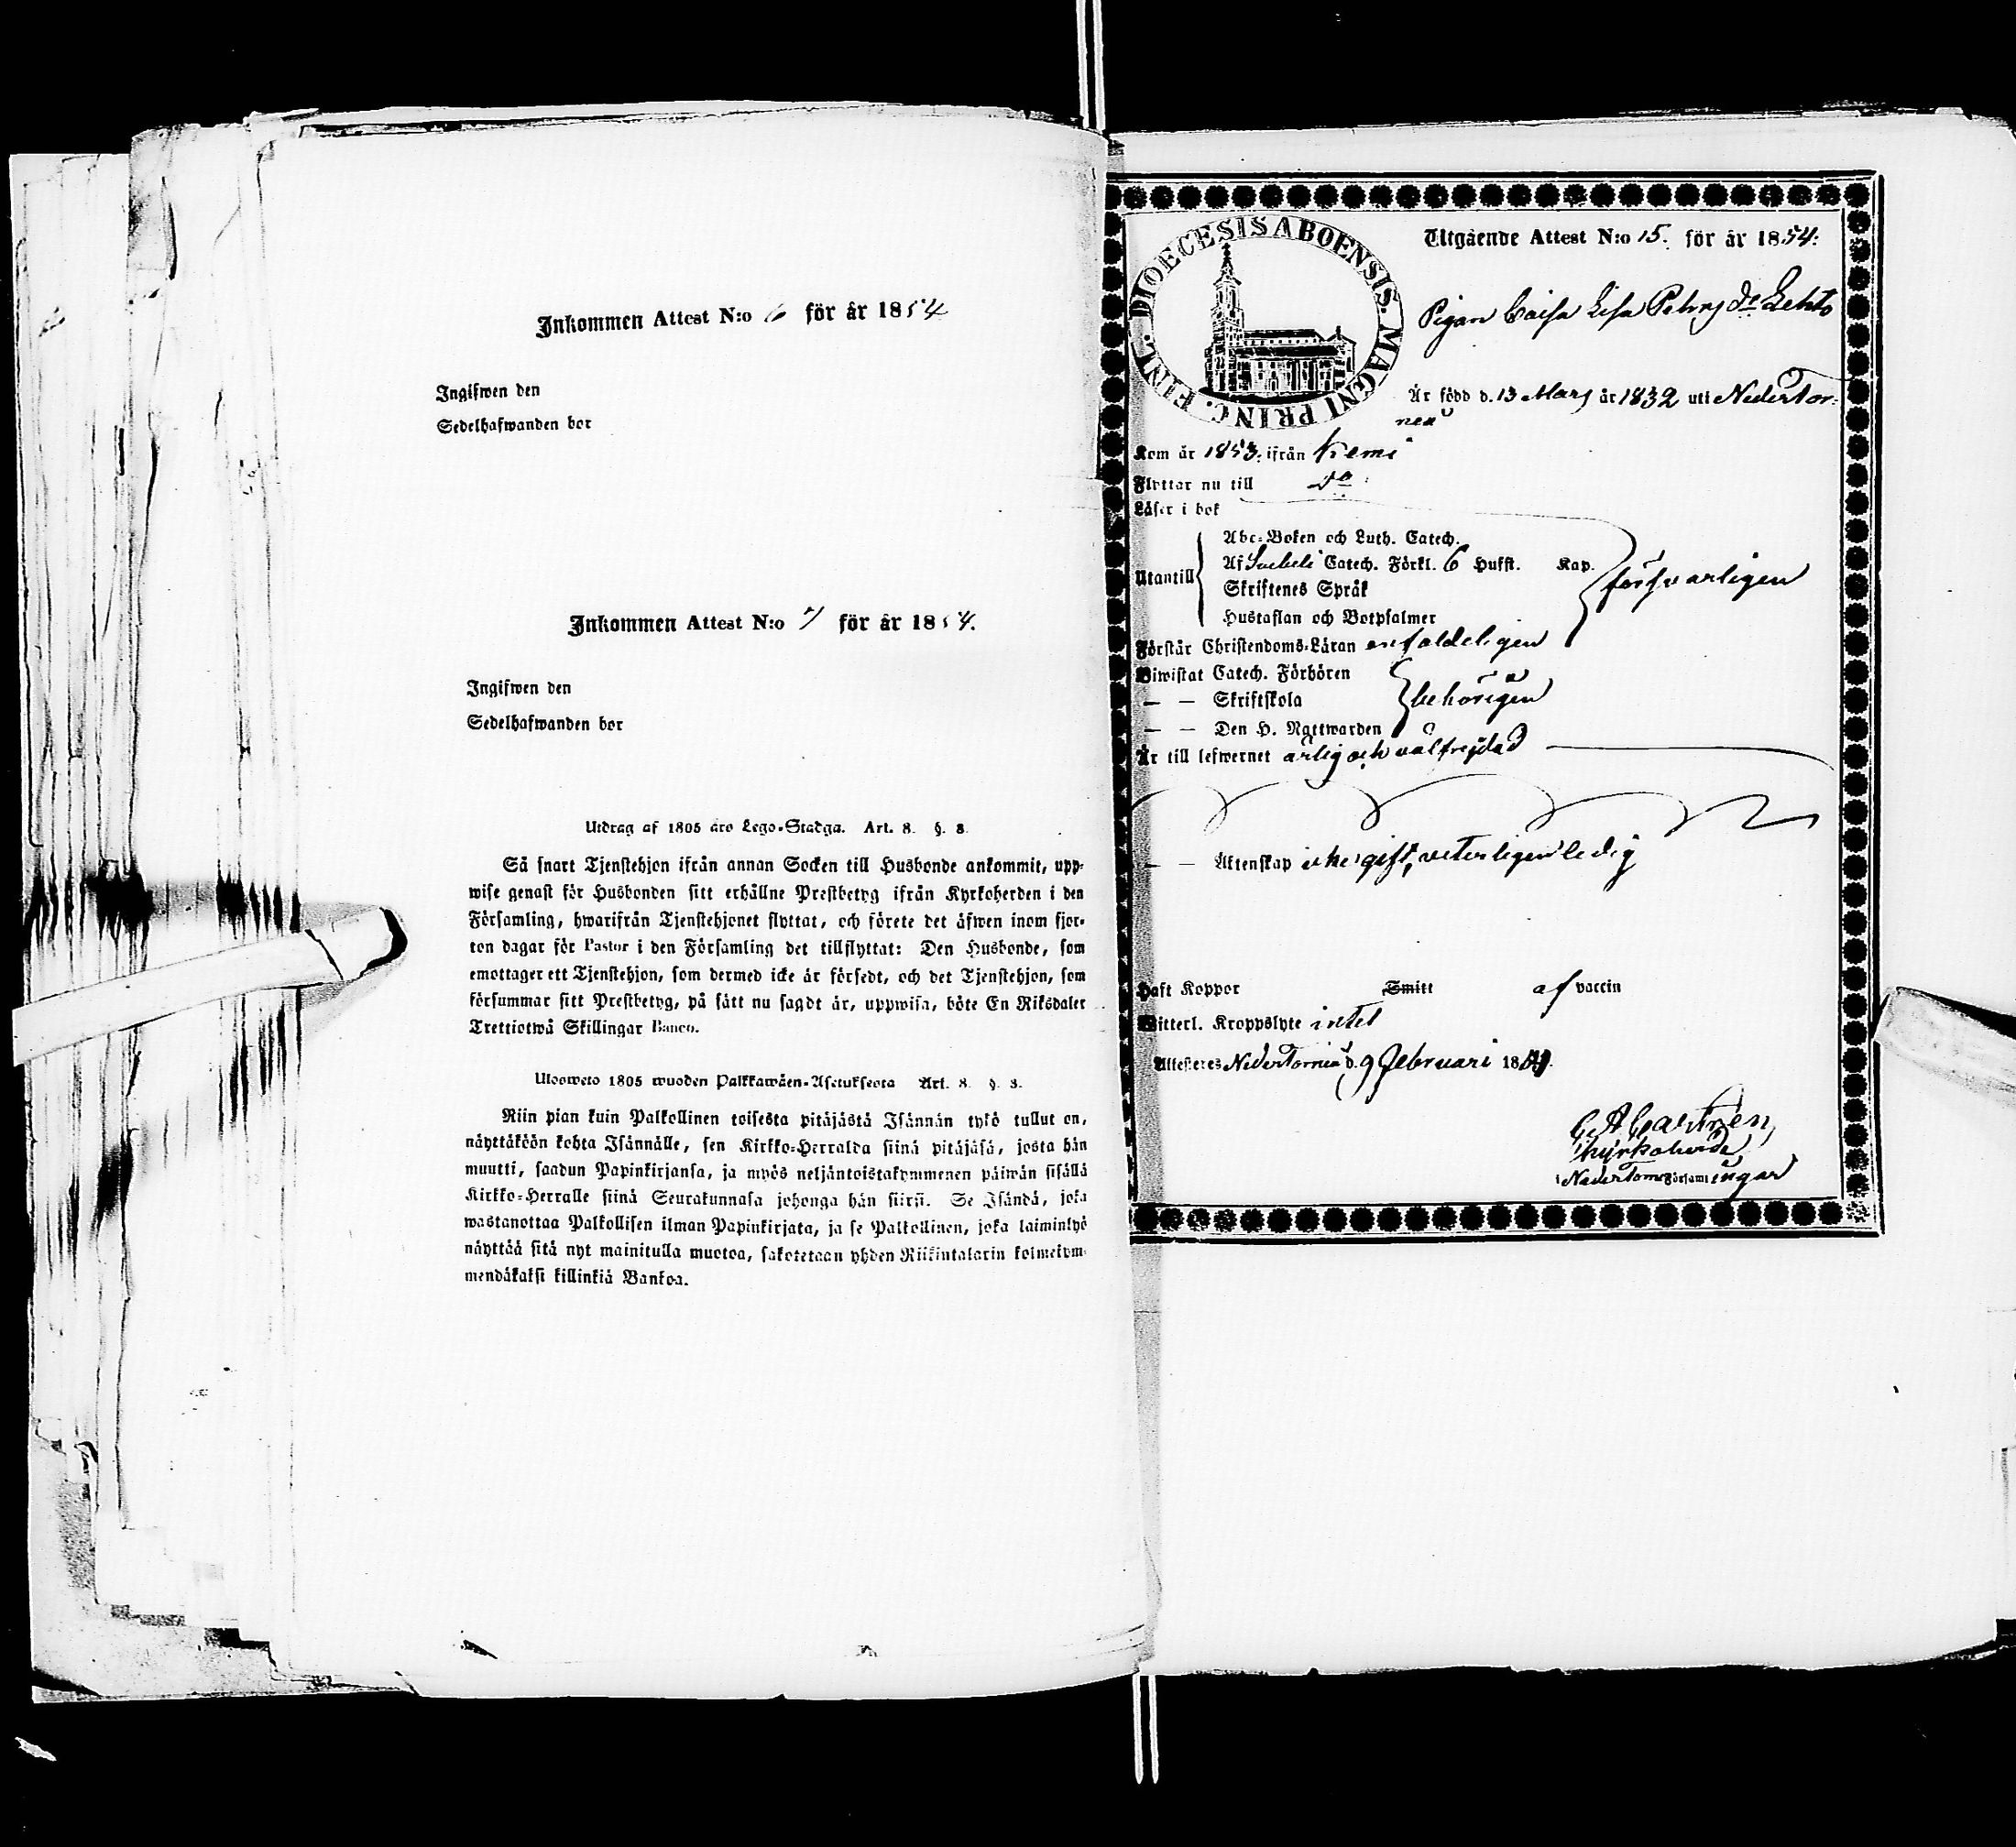 Inkommen Attest N:o 6 för år 1854
Ingifwen den
Sedelhafwanden bor
Inkommen Attest N:o 7 för år 1854.
Ingifwen den
Sedelhafwanden bor
Utdrag af 1805 års Lego-Stadga. Art. 8. §. 8.
Så snart Tjenstehjon ifrån annan Socken till Husbonde ankommit, upp-
wise genast för Husbonden sitt erhållne Prestbetyg ifrån Kyrkoherden i den
Församling, hwarifrån Tjenstehjonet flyttat, och förete det äfwen inom fjor-
ton dagar för Pastor i den Församling det tillflyttat: Den Husbonde, som
emottager ett Tjenstehjon, som dermed icke är försedt, och det Tjenstehjon, som
försummar sitt Prestbetyg, på sätt nu sagdt är, uppwisa, böte En Riksdaler
Trettiotwå Skillingar Banco.
Ulosweto 1805 wuoden Palkkawäen-Asetuksesta Art. 8. §. 8.
Niin pian kuin Palkollinen toisesta pitäjästä Isännän tykö tullut on,
näyttäköön kohta Isännälle, sen Kirkko-Herralda siinä pitäjäsä, josta hän
muutti, saadun Papinkirjansa, ja myös neljäntoistakymmenen päiwän sisällä
Kirkko-Herralle siinä Seurakunnasa johonga hän siirsi. Se Isändä, joka
wastanottaa Palkollisen ilman Papinkirjata, ja se Palkollinen, joka laiminlyö
näyttää sitä nyt mainitulla muotoa, sakotetaan yhden Riikintalarin kolmekym-
mendäkaksi killinkiä Bankoa.
DIOECESIS ABOENSIS. MAGNI PRINC. FINL.
Utgående Attest N:o 15. för år 1854:
Pigan Caisa Lisa Pehrs dr Lehto
Är född d. 13 Mars år 1832 uti NederTor-
neå
Kom år 1853: ifrån Kemi
Flyttar nu till do
Läser i bok
Utantill
Abc-Boken och Luth. Catech.
Af Svebeli Catech. Förkl. 6 Hufst. Kap.
Skriftenes Språk
Hustaflan och Botpsalmer
försvarligen
Förstår Christendoms-Läran enfaldeligen
Biwistat Catech. Förhören
— — Skriftskola
— — Den H. Nattwarden
behörigen
Är till lefwernet ärlig och välfrejdad
— — Äktenskap icke gift, veterligen ledig
Haft Koppor Smitt af vaccin
Witterl. Kroppslyte intet
Attesteres NederTorneå d. 9 Februari 1854.
Kyrkoherde
i NederTorneå Församlingar